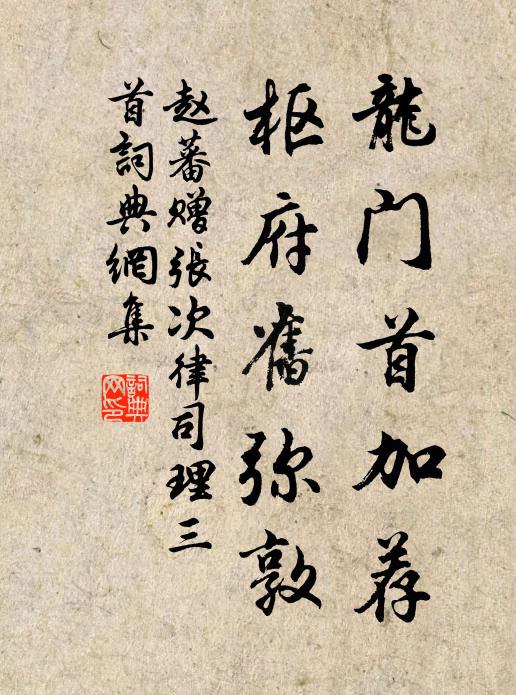 龍门首加荐
枢府舊弥敦
赵蕃赠張次律司理三
首詞典網集
詞典网印